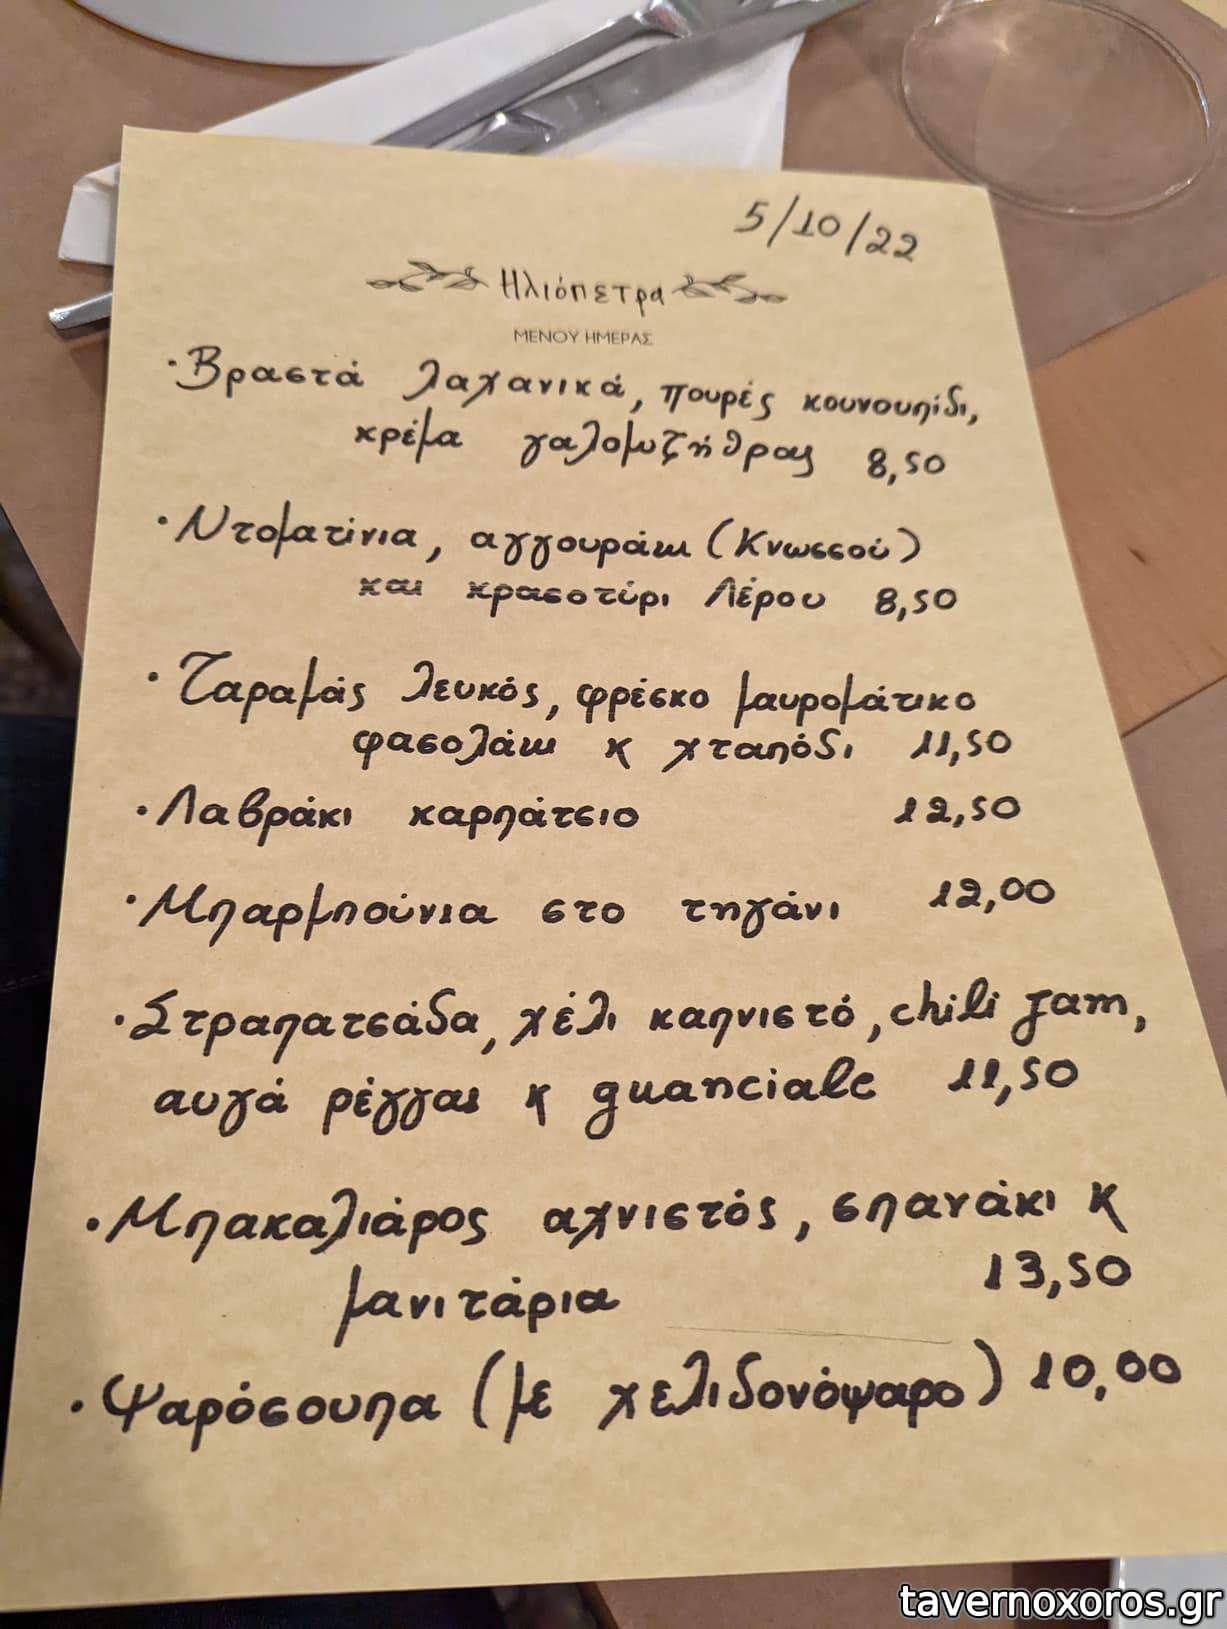 5/10/22
Ηλιόπετρα
ΜΕΝΟΥ ΗΜΕΡΑΣ
· Βραστά λαχανικά, πουρές κουνουπίδι,
κρέμα γαλομυζήθρας 8,50
· Ντοματίνια, αγγουράκι (Κνωσσού)
και κρασοτύρι Λέρου 8,50
· Ταραμάς λευκός, φρέσκο μαυρομάτικο
φασολάκι κ χταπόδι 11,50
· Λαβράκι καρπάτσιο 12,50
· Μπαρμπούνια στο τηγάνι 12,00
· Στραπατσάδα, χέλι καπνιστό, chili jam,
αυγά ρέγγας κ guanciale 11,50
· Μπακαλιάρος αχνιστός, σπανάκι κ
μανιτάρια 13,50
· Ψαρόσουπα (με χελιδονόψαρο) 10,00
tavernoxoros.gr